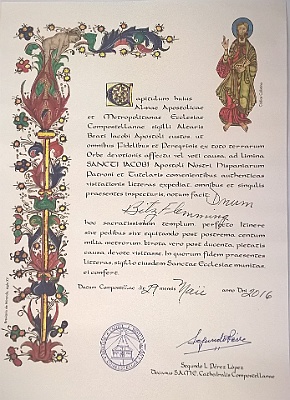 Capitulum huius
Almae Apostolicae
et Metropolitanae Ecclesiae
Compostellanae sigilli Altaris
Beati Jacobi Apostoli custos, ut
omnibus Fidelibus et Peregrinis ex toto terrarum
Orbe, devotionis affectu vel voti causa, ad limina
SANCTI JACOBI Apostoli Nostri Hispaniarum
Patroni et Tutelaris convenientibus, authenticas
visitationis litteras expediat, omnibus et singulis
praesentes inspecturis, notum facit: Dnum
Fleming
hoc sacratissimum templum, perfecto itinere
sive pedibus sive equitando post postrema centum
milia metrorum, birota vero post ducenta, pietatis
causa, devote visitasse. In quorum fidem praesentes
litteras, sigillo eiusdem Sanctae Ecclesiae munitas,
ei confero.
Datum Compostellae die 29 mensis Maii anno Dni 2016
Segundo L. Pérez López
Decanus S.A.M.E. Cathedralis Compostellanae